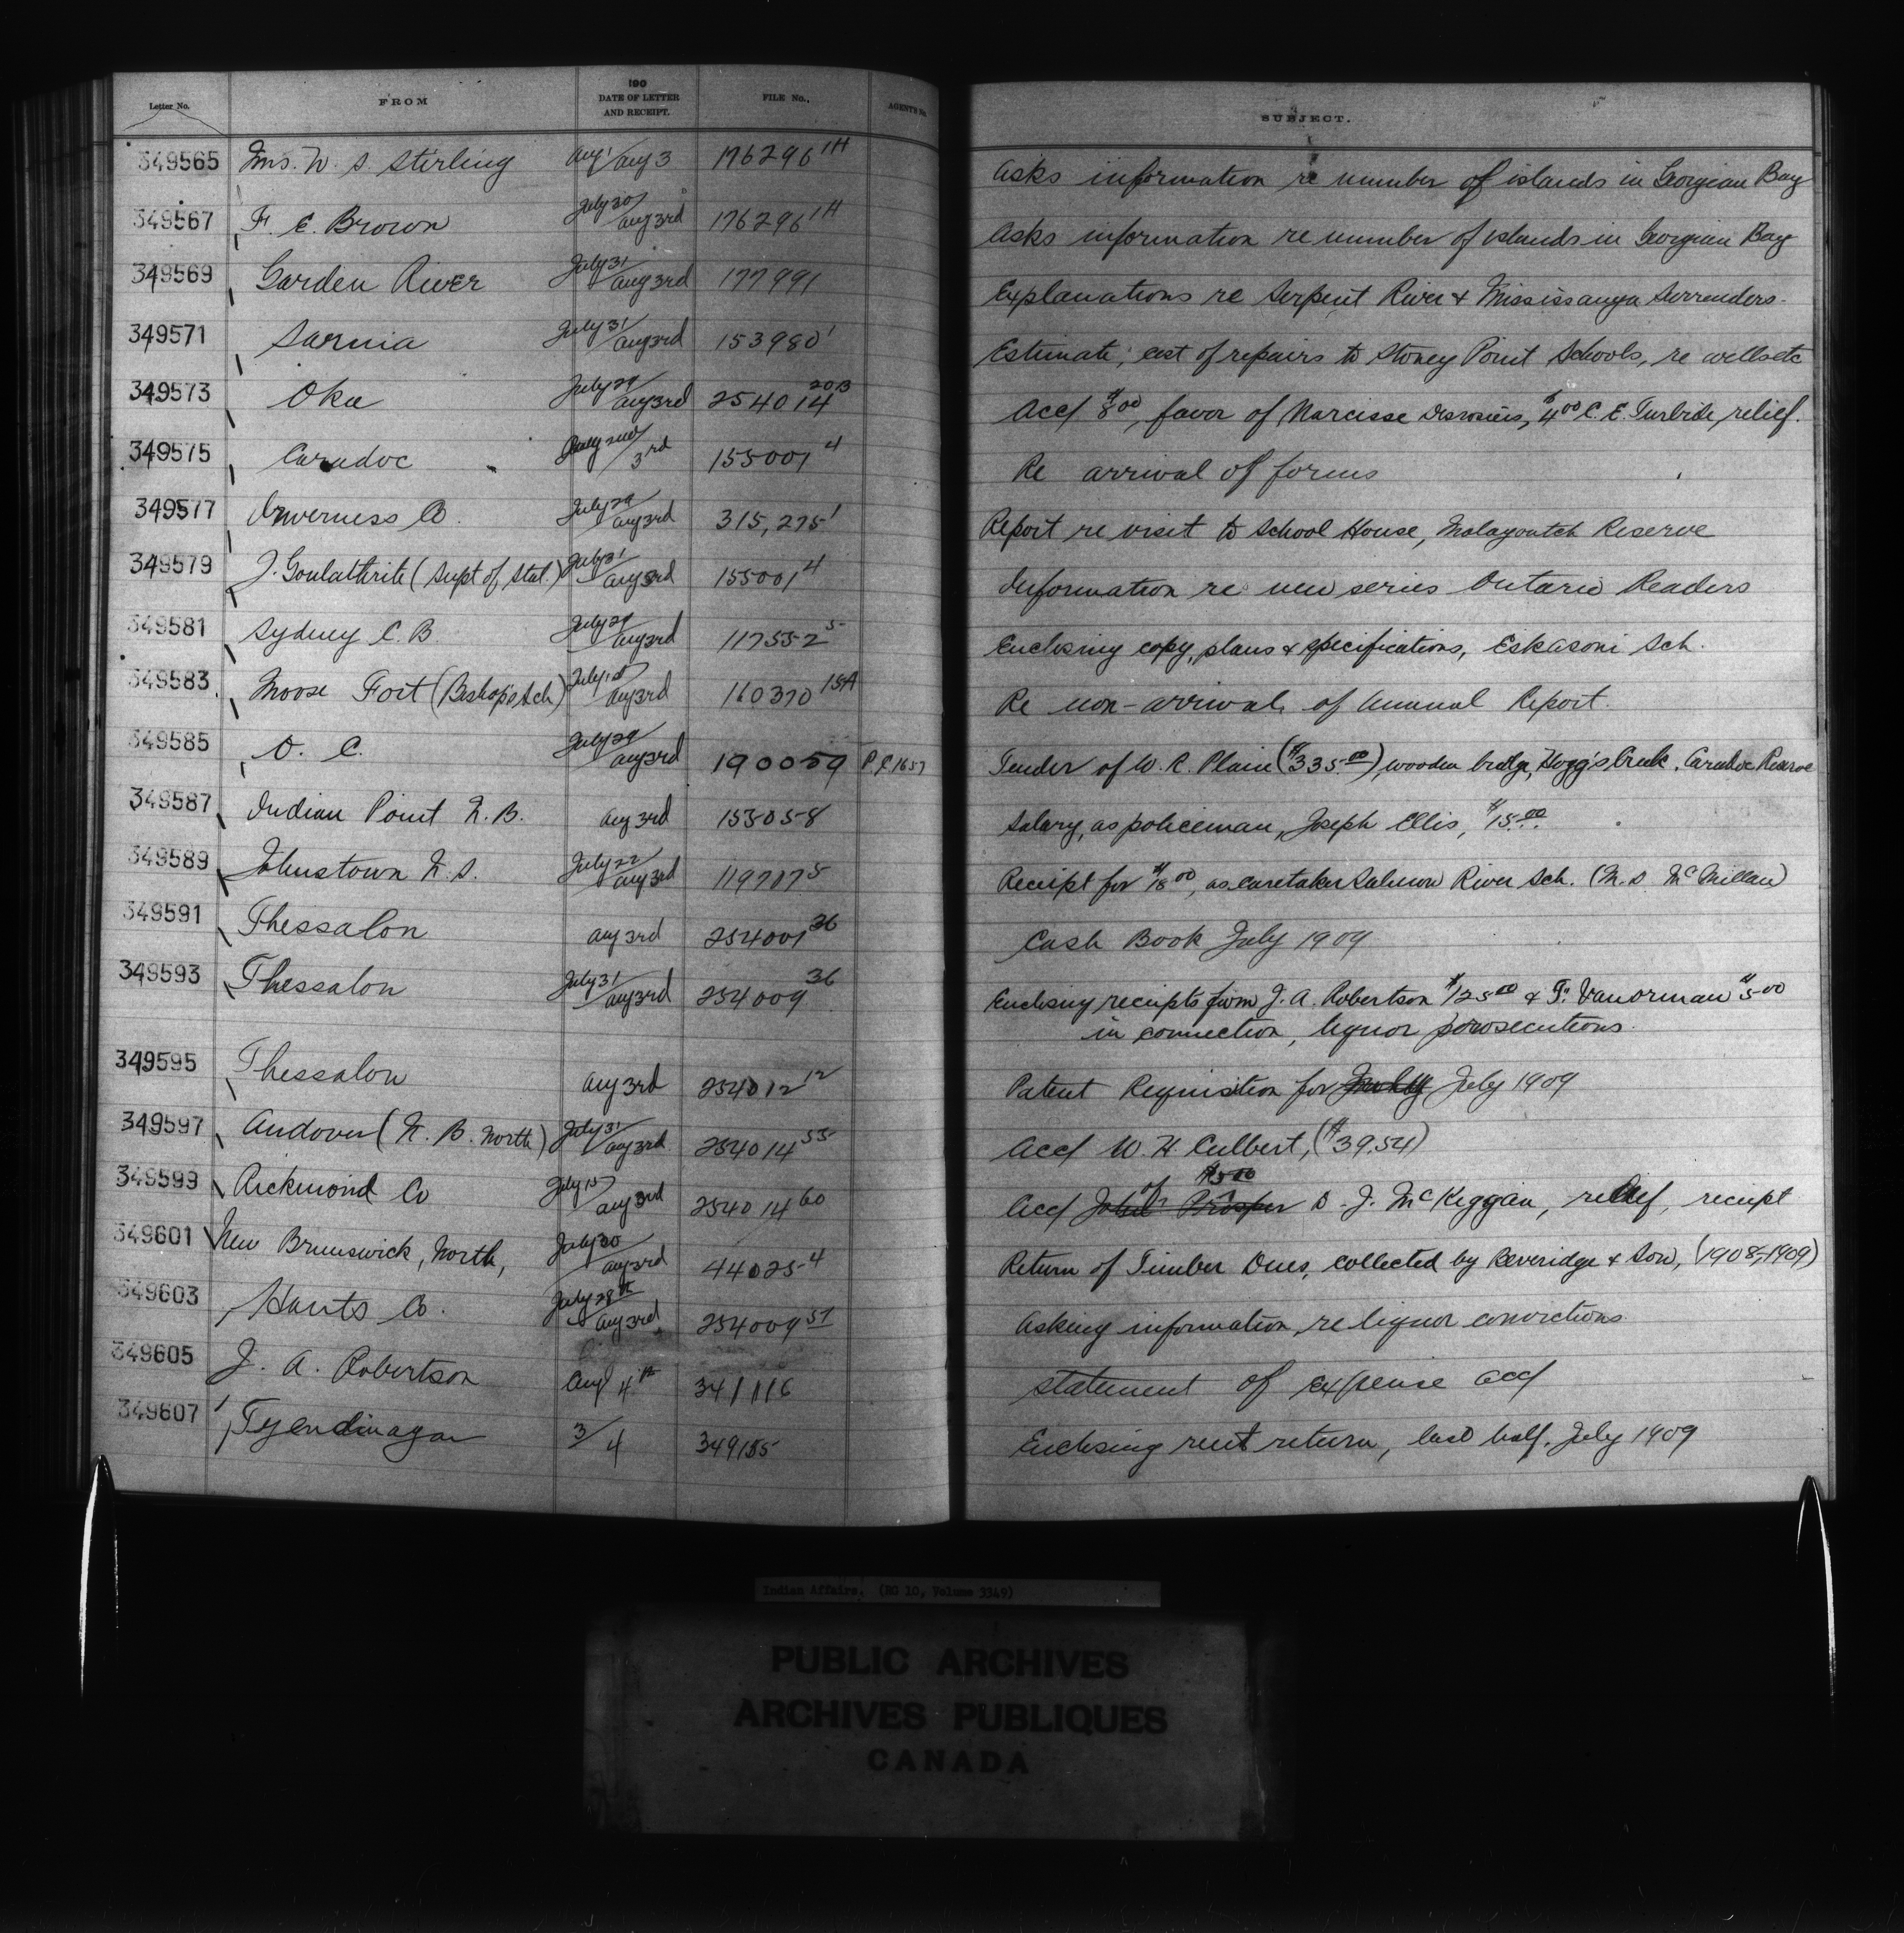 Letter No. FROM 190 DATE OF LETTER AND RECEIPT. FILE No. AGENT'S No. SUBJECT.
349565 Mrs. W. S. Stirling Aug 1/Aug 3 176296 1H Asks information re number of islands in Georgian Bay
349567 F. E. Brown July 30/Aug 3rd 176296 1H Asks information re number of islands in Georgian Bay
349569 Garden River July 31/Aug 3rd 177991 Explanations re Serpent River & Mississauga Surrenders.
349571 Sarnia July 31/Aug 3rd 153980 1 Estimate, cost of repairs to Stoney Point Schools, re wells etc
349573 Oka July 29/Aug 3rd 254014 20B Acct $8.00, favor of Narcisse Desrosiers, $4.00 C. E. Turbide, relief.
349575 Caradoc Aug 2nd/3rd 155001 4 Re arrival of forms
349577 Inverness Co. July 29/Aug 3rd 315,275 1 Report re visit to School House, Malagawatch Reserve
349579 J. Goulathrite (Supt of Stat.) July 31/Aug 3rd 155001 4 Information re new series Ontario Readers
349581 Sydney C. B. July 29/Aug 3rd 117552 5 Enclosing copy, plans & specifications, Eskasoni Sch.
349583 Moose Fort (Bishop's Sch) July 15/Aug 3rd 160370 15A Re non-arrival of Annual Report.
349585 O. C. July 29/Aug 3rd 190059 P.C. 1657 Tender of W. R. Plain ($335.00) wooden bridge, Hogg's Creek, Caradoc Reserve
349587 Indian Point N. B. Aug 3rd 153058 Salary, as policeman, Joseph Ellis, $15.00
349589 Johnstown N. S. July 22/Aug 3rd 119707 5 Receipt for $18.00, as caretaker Salmon River Sch. (M. S. McMillan)
349591 Thessalon Aug 3rd 254001 36 Cash Book July 1909
349593 Thessalon July 31/Aug 3rd 254009 36 Enclosing receipts from J. A. Robertson $125.00 & F. Vanorman $5.00
in connection, liquor prosecutions.
349595 Thessalon Aug 3rd 254012 12 Patent Requisition for July 1909
349597 Andover (N. B. North) July 31/Aug 3rd 254014 55 Acct W. H. Culbert, ($39.54)
349599 Richmond Co July 15/Aug 3rd 254014 60 Acct John Prosper of $5.00 D. J. McKeggan, relief, receipt
349601 New Brunswick, North, July 30/Aug 3rd 44025-4 Return of Timber Dues, collected by Beveridge & Son, (1908-1909)
349603 Hants Co. July 28th/Aug 3rd 254009 57 Asking information, re liquor convictions
349605 J. A. Robertson Aug 4th 341116 Statement of expense acct
349607 Tyendinaga 3/4 349155 Enclosing rent return, last half, July 1909
Indian Affairs. (RG 10, Volume 3349)
PUBLIC ARCHIVES
ARCHIVES PUBLIQUES
CANADA